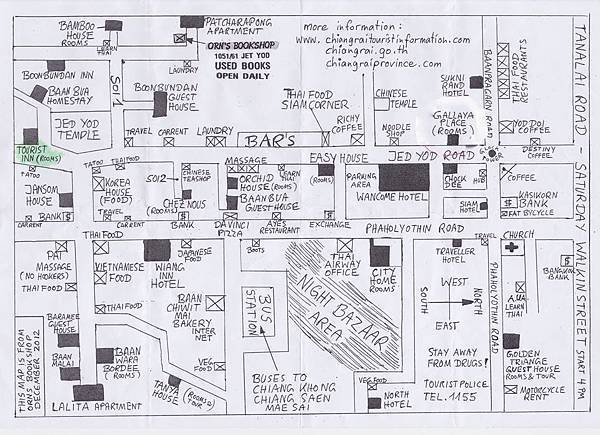 BAMBOO
HOUSE
ROOMS
LEARN
THAI
PATCHARAPONG
APARTMENT
ORN'S BOOKSHOP
1051/61 JET YOD
USED BOOKS
OPEN DAILY
more information:
www.chiangraitouristinformation.com
chiangrai.go.th
chiangraiprovince.com
TANALAI ROAD - SATURDAY WALKIN STREET START 4 PM
BOONBUNDAN INN
BAAN BUA
HOMESTAY
SOI 1
LAUNDRY
BOONBUNDAN
GUEST
HOUSE
THAI FOOD
SIAMCORNER
RICHY
COFFEE
CHINESE
TEMPLE
NOODLE
SHOP
SUKNI
RAND
HOTEL
GALLAYA
PLACE
(ROOMS)
BAANPRAGARN ROAD
THAI FOOD
RESTAURANTS
YOD DOI
COFFEE
JED YOD
TEMPLE
TRAVEL
CARRENT
LAUNDRY
BAR'S
DESTINY
COFFEE
TOURIST
INN (ROOMS)
TATOO
TATOO
THAI FOOD
SOI 2
CHINESE
TEASHOP
MASSAGE
EASY HOUSE
JED YOD ROAD
JANSOM
HOUSE
KOREA
HOUSE
(FOOD)
CHEZ NOUS
(ROOMS)
ORCHID
HOUSE (ROOMS)
LEARN
THAI
BAANBUA
GUESTHOUSE
(ROOMS)
PARKING
AREA
WANCOME HOTEL
CHOOK
DEE
HUB
SIAM
HOTEL
COFFEE
KASIKORN
BANK
FAT BYCYCLE
BANK $
TRAVEL
CARRENT
CARRENT
$
BANK
DAVINCI
PIZZA
AYES
RESTAURANT
EXCHANGE
PHAHOLYOTHIN ROAD
THAI FOOD
TRAVEL
CHURCH
PAI
MASSAGE
(NO HOOKERS)
THAI FOOD
VIETNAMESE
FOOD
THAI FOOD
WIANG
INN
HOTEL
JAPANESE
FOOD
BOOTS
THAI
AIRWAY
OFFICE
CITY
HOME
ROOMS
TRAVELLER
HOTEL
WEST
SOUTH
NORTH
EAST
PHAHOLYOTHIN ROAD
$
BANGKOK
BANK
A.U.A.
LEARN
THAI
BAAN
CHIWIT
MAI
BAKERY
INTER
NET
BUS
STATION
NIGHT BAZAAR
AREA
THIS MAP IS FROM
ORN'S BOOKSHOP
DECEMBER 2012
BARAMEE
GUEST
HOUSE
BAAN
MALAI
LALITA APARTMENT
BAAN
WARA
BORDEE
(ROOMS)
VEG FOOD
TANYA
HOUSE
(ROOMS)
TOUR
BUSES TO
CHIANG KHONG
CHIANG SAEN
MAE SAI
VEG FOOD
NORTH
HOTEL
STAY AWAY
FROM DRUGS!
TOURIST POLICE
TEL. 1155
GOLDEN
TRIANGE
GUEST HOUSE
ROOMS & TOUR
MOTORCYCLE
RENT